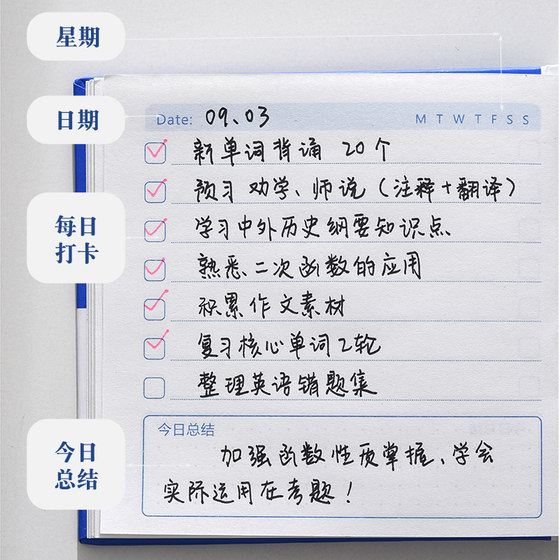 星期
日期
Date: 09.03
M T W T F S S
新单词背诵 20个
预习 劝学、师说（注释+翻译）
每日
打卡
学习中外历史纲要知识点
熟悉二次函数的应用
积累作文素材
复习核心单词2轮
整理英语错题集
今日
总结
今日总结
加强函数性质掌握、学会
实际运用在考题！